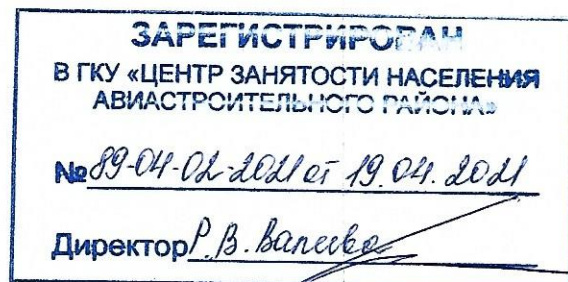 ЗАРЕГИСТРИРОВАН
В ГКУ «ЦЕНТР ЗАНЯТОСТИ НАСЕЛЕНИЯ
АВИАСТРОИТЕЛЬНОГО РАЙОНА»
№ 89-04-02-2021 от 19.04.2021
Директор Р.В. Валеева